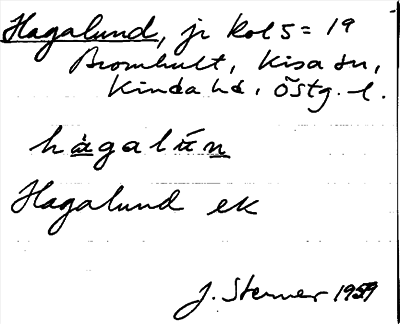 Hagalund, jr kol 5 = 19
Bromhult, Kisa sn,
Kinda hd, Östg. l.
hàgalún
Hagalund ek
J. Sterner 1959